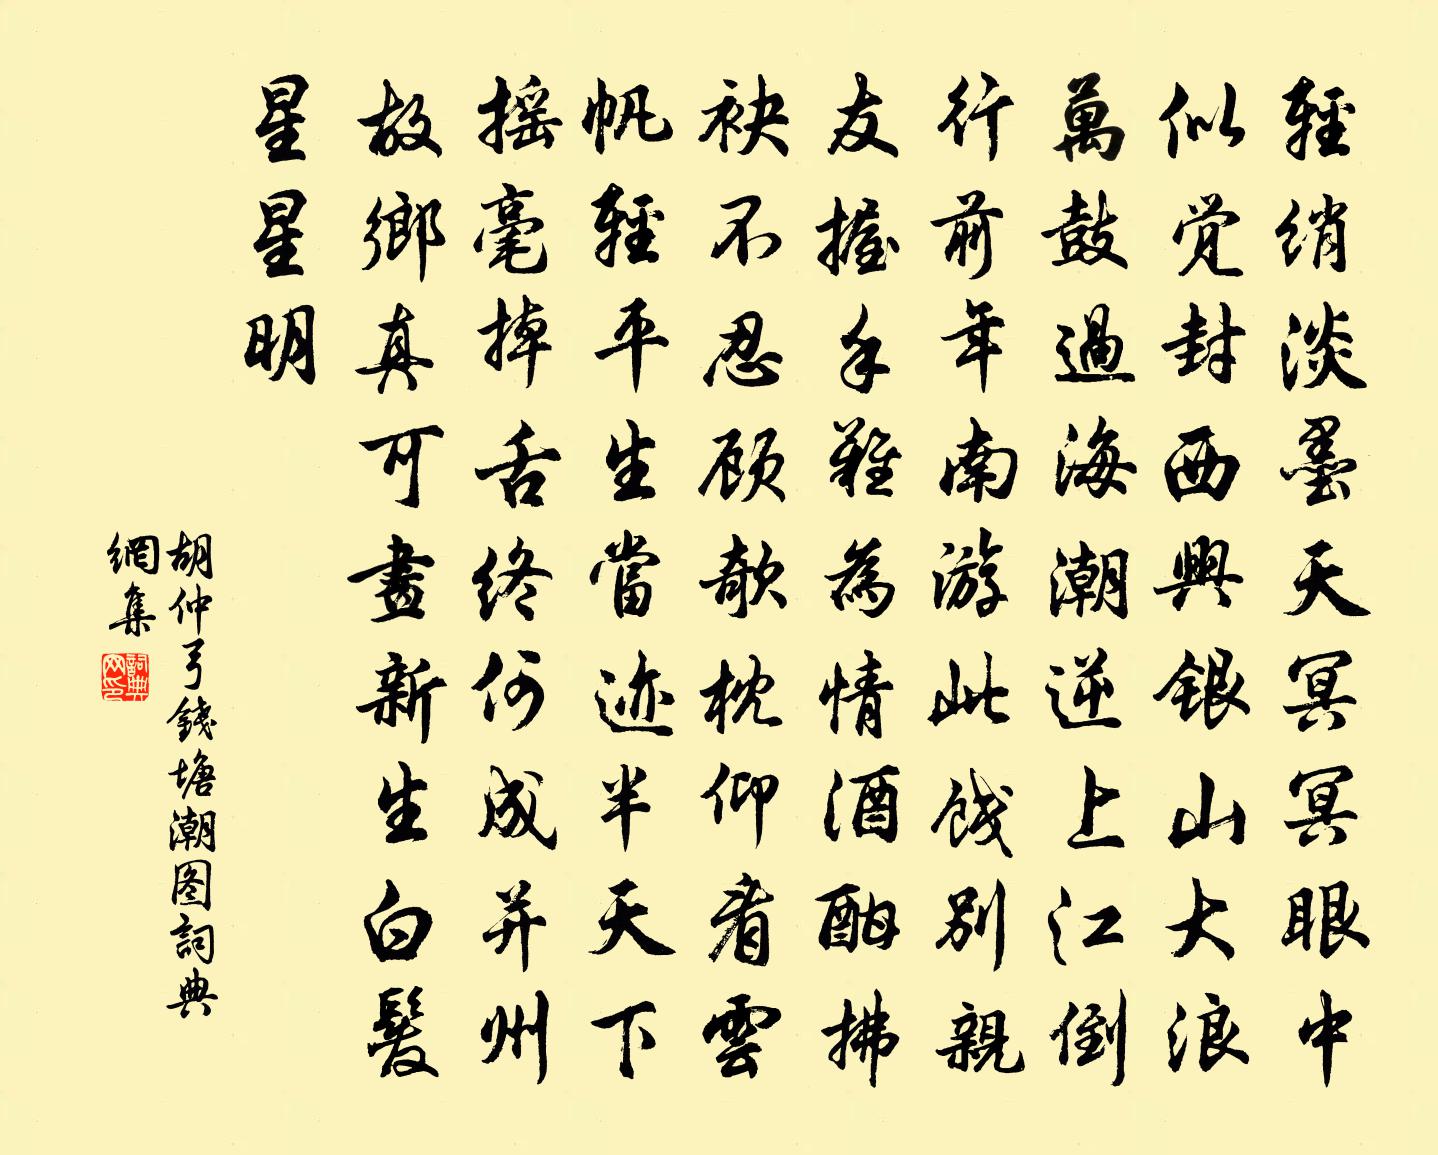 輕綃淡墨天冥冥眼中
似觉封西興銀山大浪
萬鼓過海潮逆上江倒
行前年南游此餞别親
友握手難為情酒酣拂
袂不忍顾欹枕仰看雲
帆輕平生當迹半天下
摇毫掉舌终何成并州
故鄉真可畫新生白髮
星星明
胡仲弓錢塘潮图詞典
網集
詞典
网印